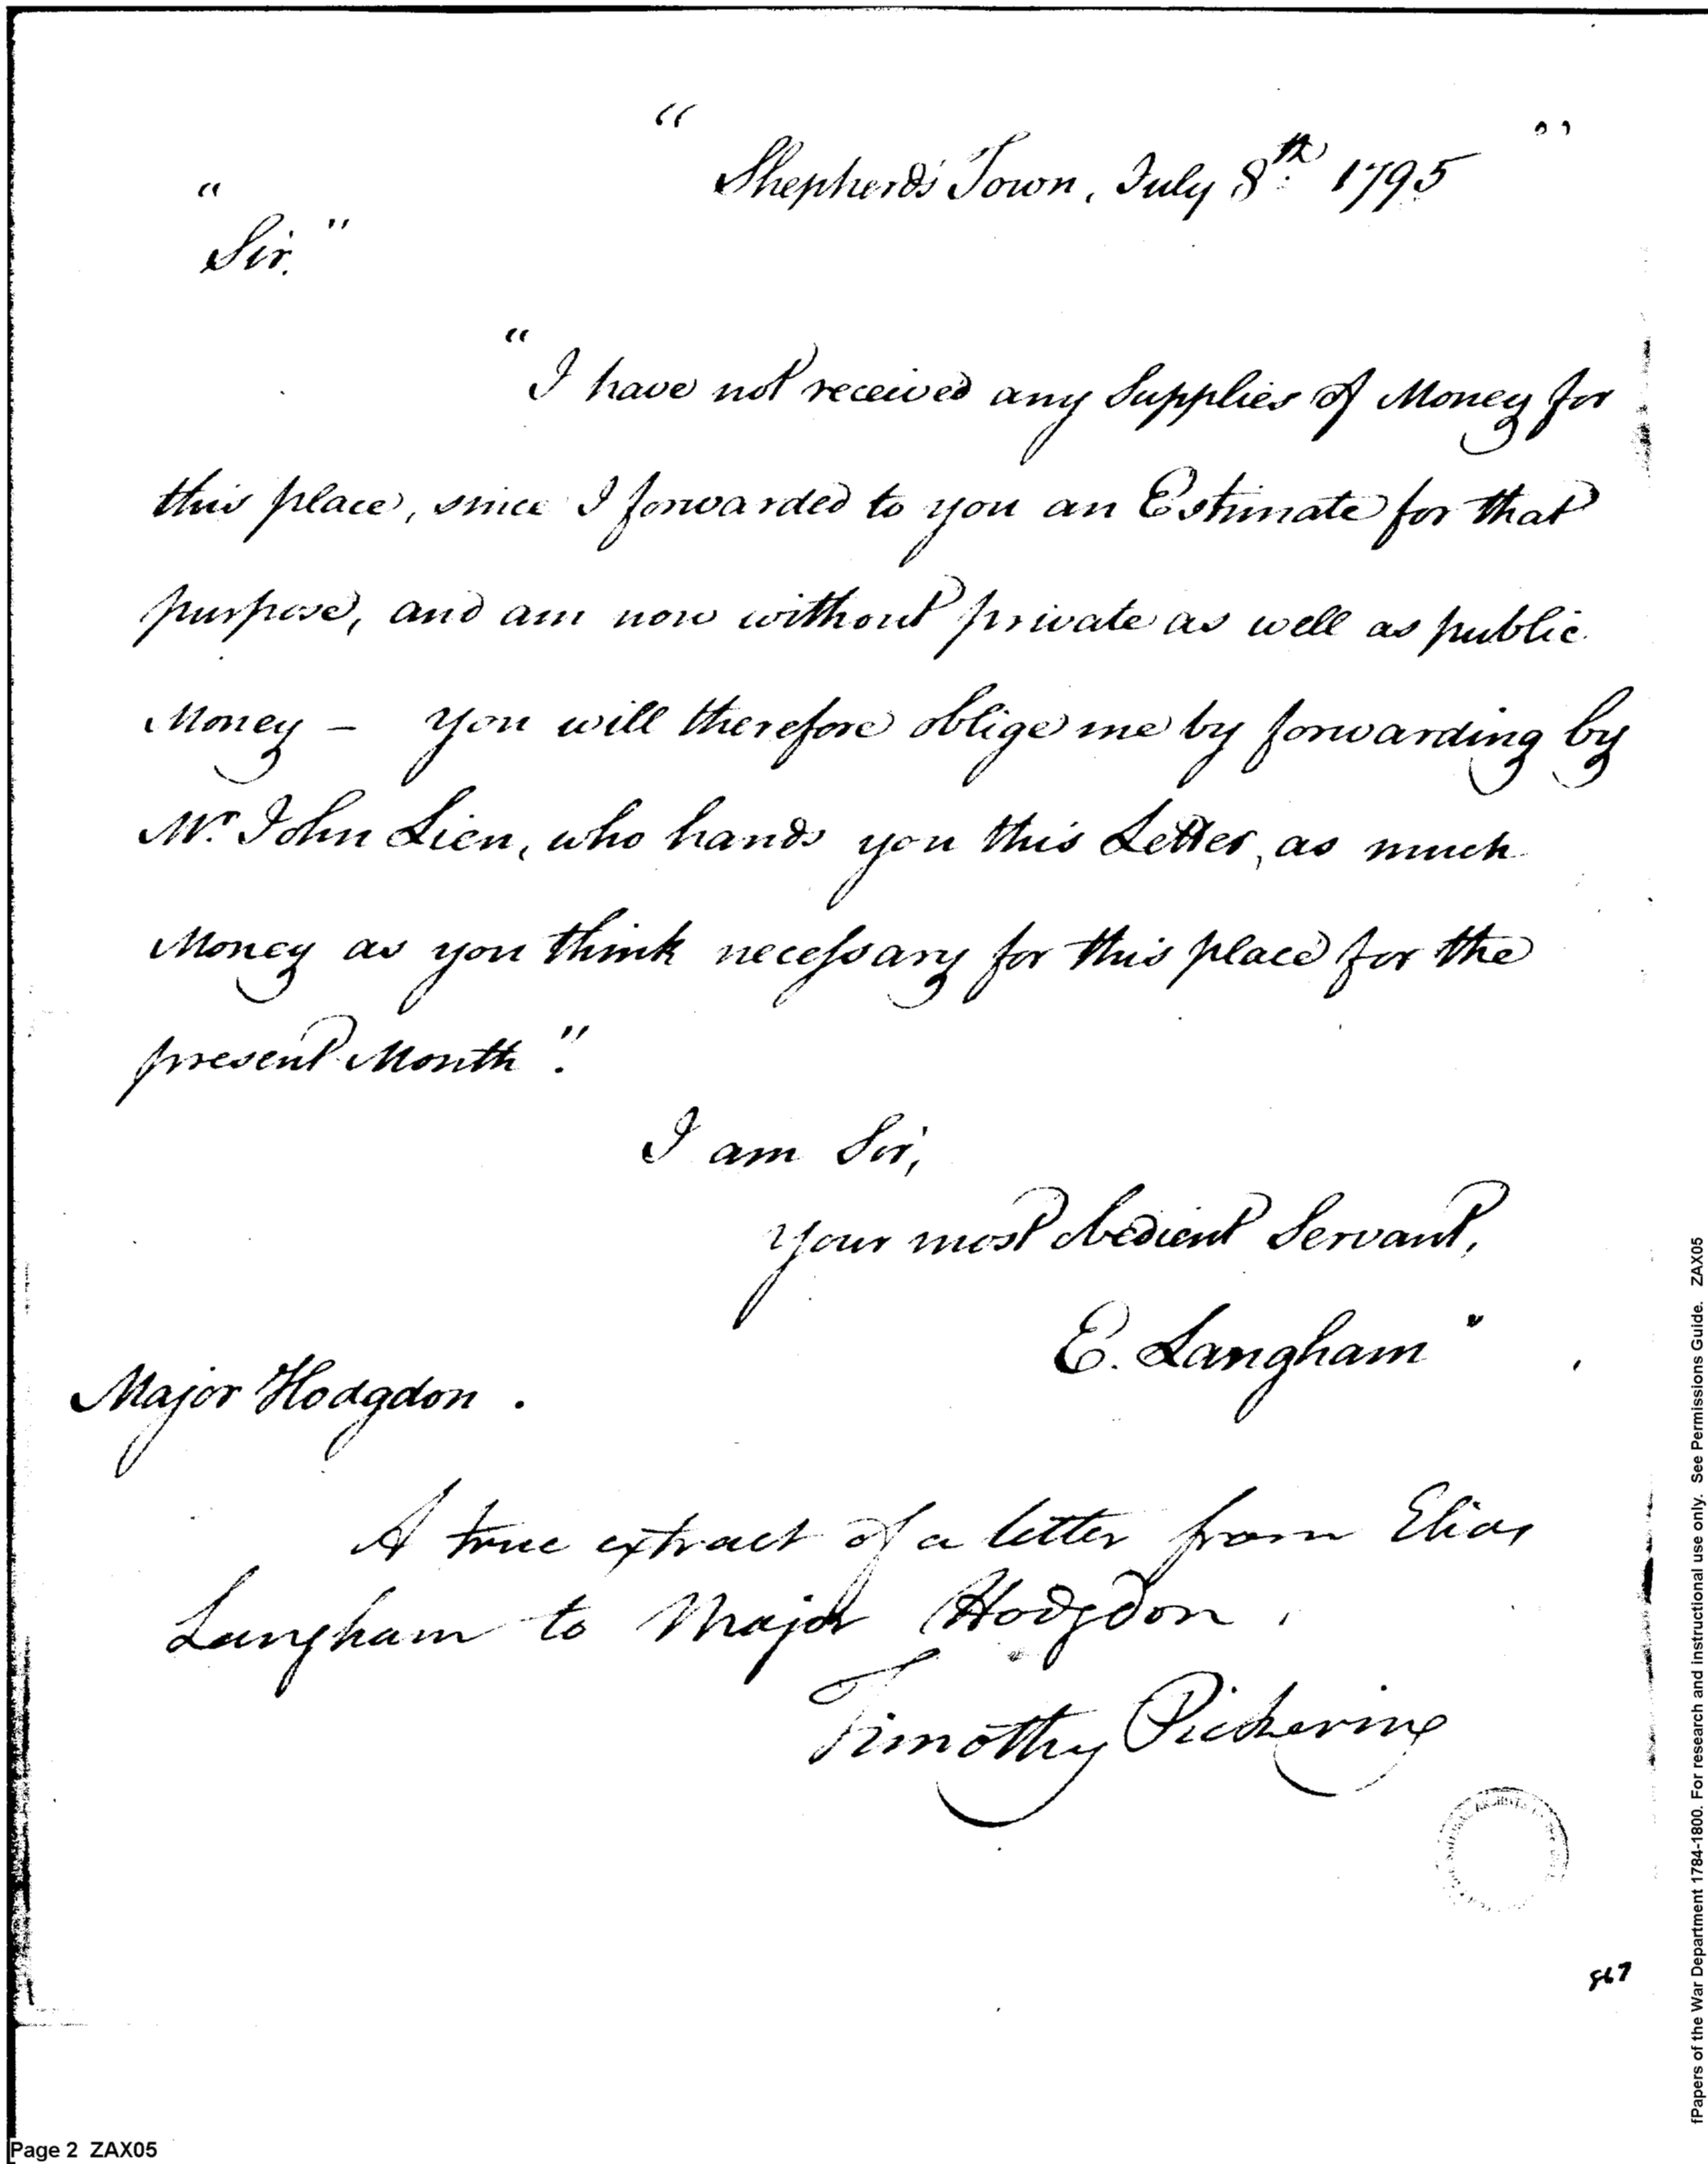 " Shepherds' Town, July 8th. 1795 "
" Sir. "
" I have not received any Supplies of Money for
this place, since I forwarded to you an Estimate for that
purpose, and am now without private as well as public
Money – you will therefore oblige me by forwarding by
Mr. John Lien, who hands you this Letter, as much
Money as you think necessary for this place for the
present Month ".
I am Sir,
Your most obedient Servant,
E. Langham "
Major Hodgdon.
A true extract of a letter from Elias
Langham to Major Hodgdon.
Timothy Pickering
867
Page 2 ZAX05
fPapers of the War Department 1784-1800. For research and instructional use only. See Permissions Guide. ZAX05